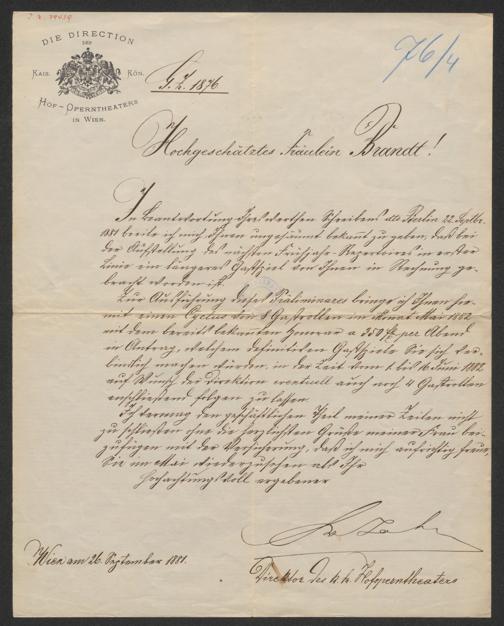 J. N. 79459
DIE DIRECTION
DER
KAIS. KÖN.
HOF-OPERNTHEATERS
IN WIEN.
76/4
G. Z. 1876
Hochgeschätztes Fräulein Brandt!
In Beantwortung Ihres werthen Schreibens dto Berlin 22. Septbr.
1881 beeile ich mich Ihnen ungesäumt bekannt zu geben, daß bei
der Aufstellung des nächsten Frühjahr-Repertoires in erster
Linie ein längeres Gastspiel von Ihnen in Rechnung ge-
bracht worden ist.
Zur Ausführung dieses Präliminares bringe ich Ihnen hie-
mit einen Cyclus von 8 Gastrollen im Monat Mai 1882
mit dem bereits bekannten Honorar a 350 fl per Abend
in Antrag, welchem definitiven Gastspiele Sie sich ver-
bindlich machen würden, in der Zeit vom 1. bis 16. Juni 1882
auf Wunsch der Direktion eventuell auch noch 4 Gastrollen
anschließend folgen zu lassen.
Ich vermag den geschäftlichen Theil meiner Zeilen nicht
zu schließen ohne die herzlichsten Grüße meiner Frau bei-
zufügen mit der Versicherung, daß ich mich aufrichtig freue,
Sie im Mai wiederzusehen als Ihr
hochachtungsvoll ergebener
Wien am 26. September 1881.
Direktor des k. k. Hofoperntheaters